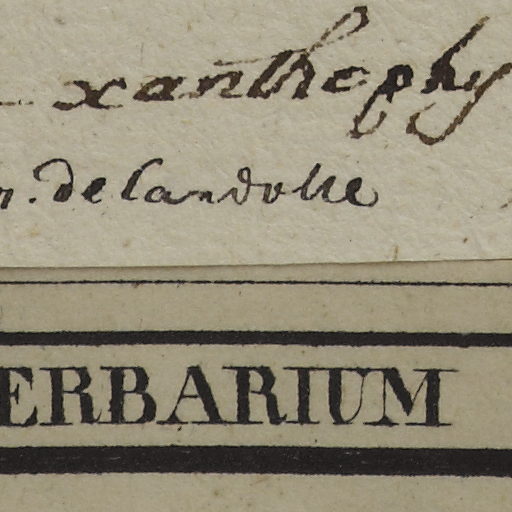 xanthophy
n. de Candolle
ERBARIUM